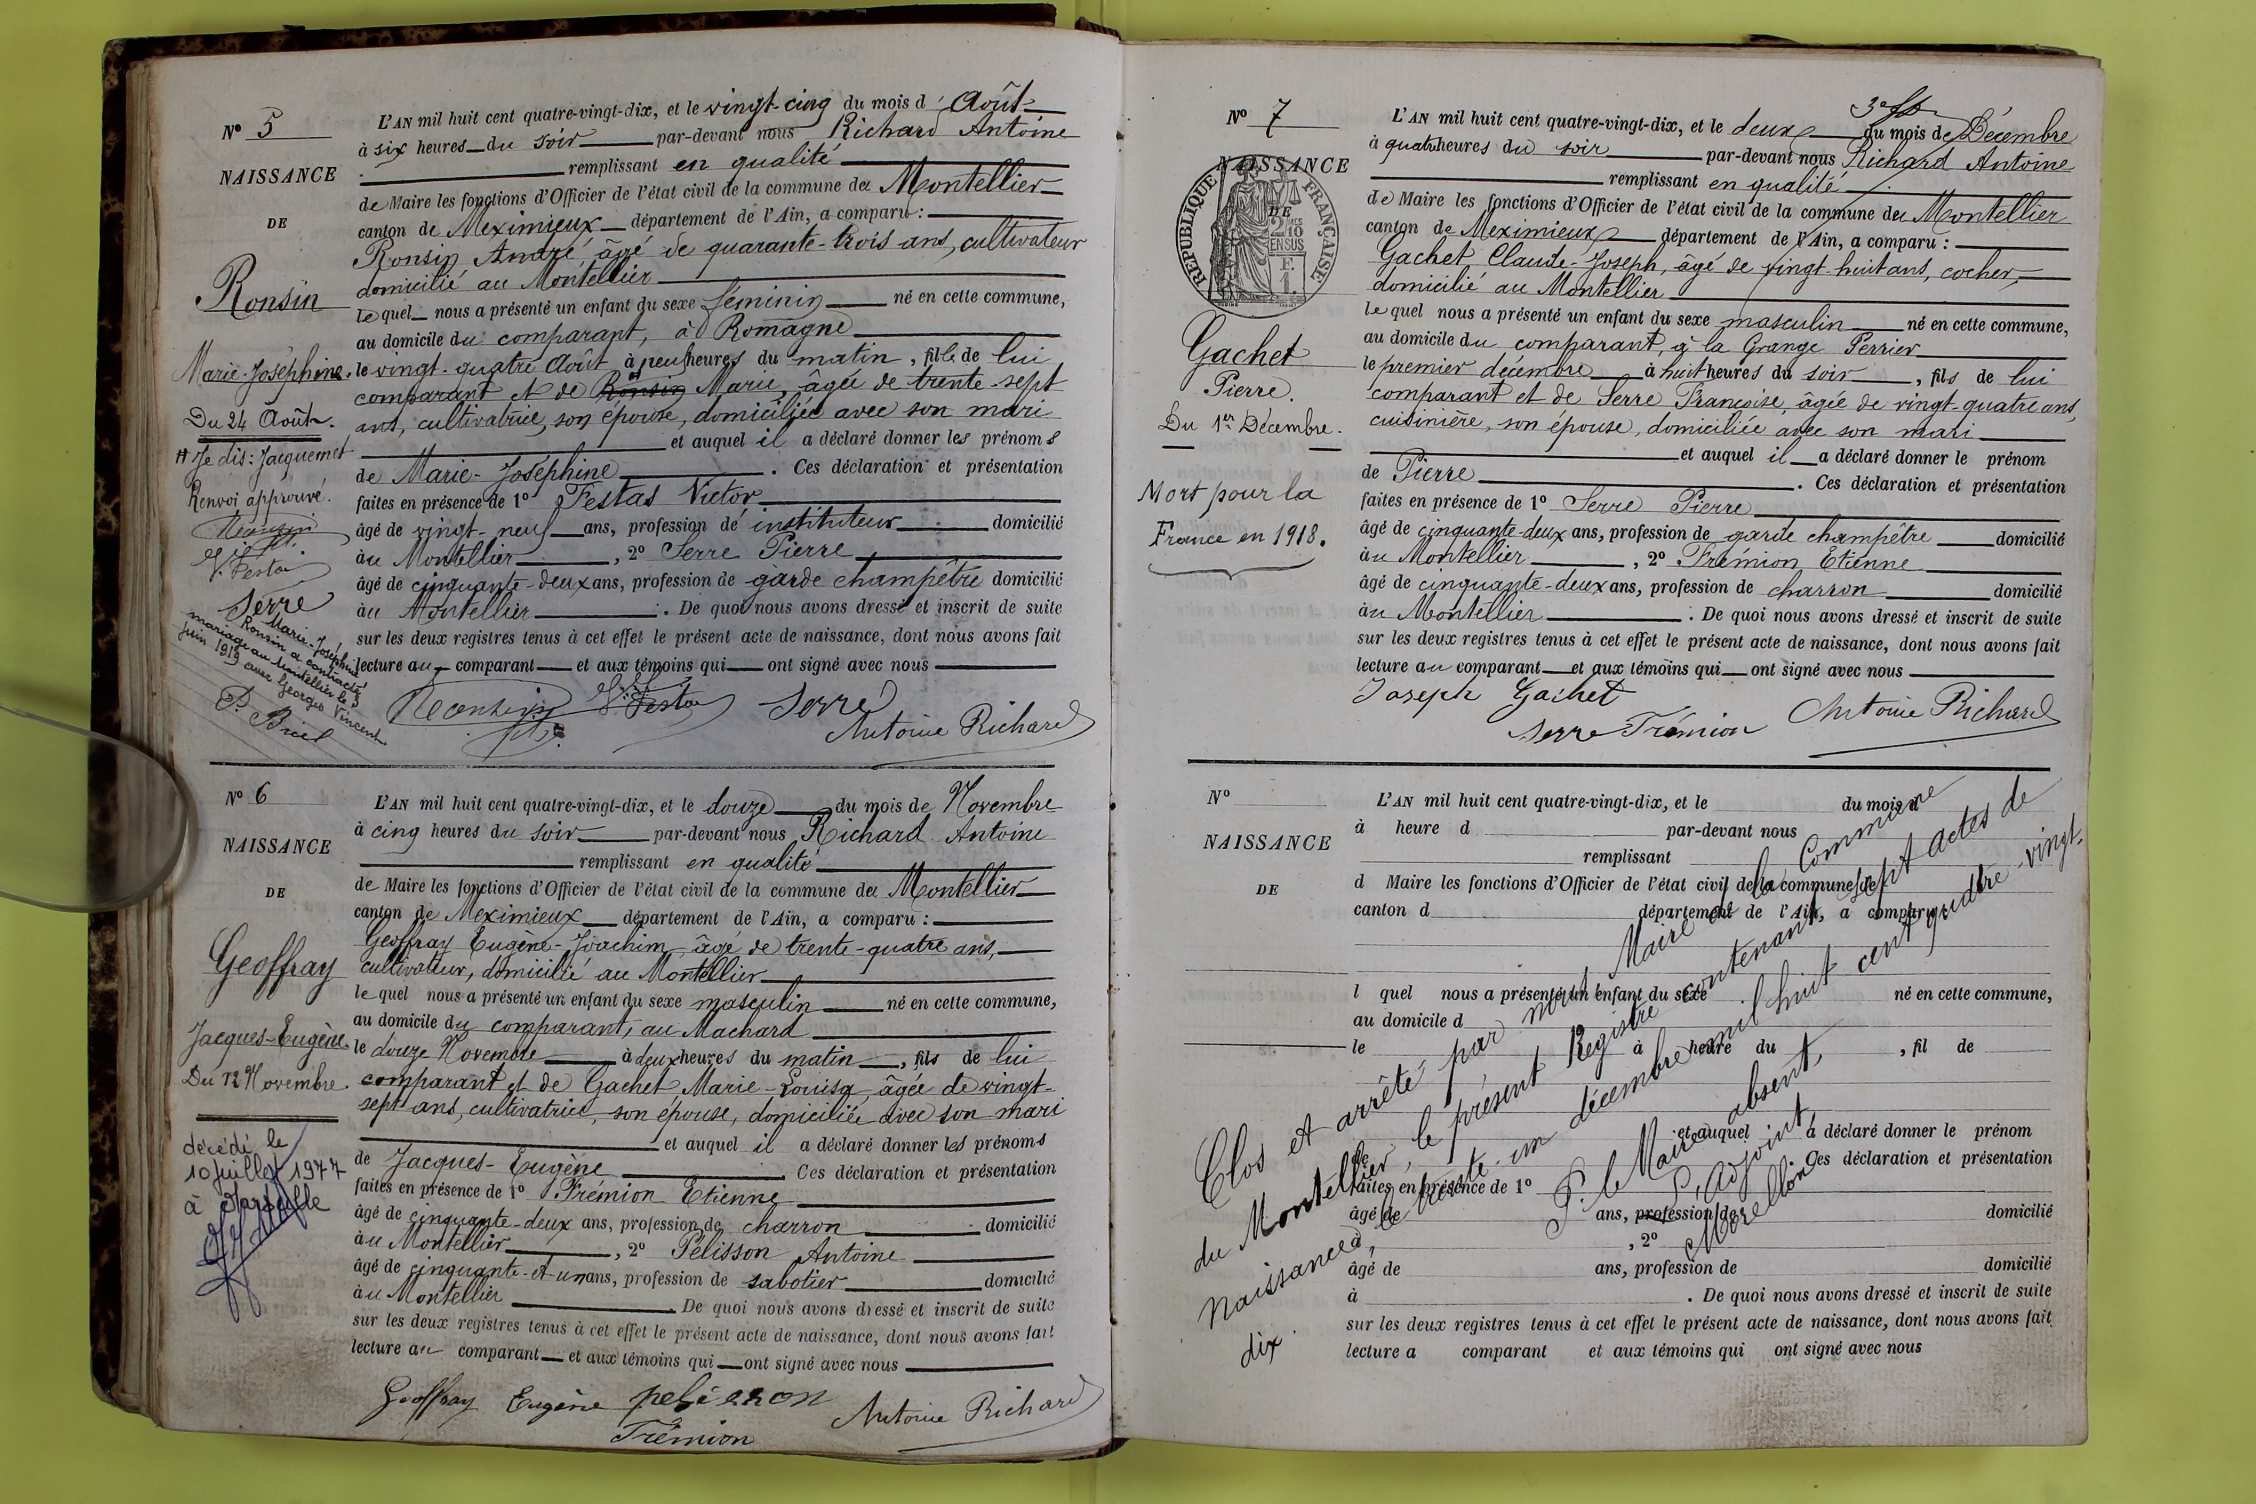 N° 5
NAISSANCE
DE
Ronsin
Marie-Joséphine.
Du 24 Août.
# Je dis: Jacquemet
Renvoi approuvé.
V. Festas
Serre
Marie-Joséphine
Ronsin a contracté
mariage au Montellier le 5
juin 1919 avec Georges Vincent
L'AN mil huit cent quatre-vingt-dix, et le vingt-cinq du mois d'Août
à six heures du soir par-devant nous Richard Antoine
remplissant en qualité
de Maire les fonctions d'Officier de l'état civil de la commune du Montellier
canton de Meximieux département de l'Ain, a comparu :
Ronsin André, âgé de quarante-trois ans, cultivateur
domicilié au Montellier
lequel nous a présenté un enfant du sexe féminin né en cette commune,
au domicile du comparant, à Romagne
le vingt-quatre Août à neuf heures du matin, fille de lui
comparant et de Ronsin # Marie, âgée de trente-sept
ans, cultivatrice, son épouse, domiciliée avec son mari
et auquel il a déclaré donner les prénoms
de Marie-Joséphine. Ces déclaration et présentation
faites en présence de 1° Festas Victor
âgé de vingt-neuf ans, profession de instituteur domicilié
au Montellier, 2° Serre Pierre
âgé de cinquante-deux ans, profession de garde champêtre domicilié
au Montellier. De quoi nous avons dressé et inscrit de suite
sur les deux registres tenus à cet effet le présent acte de naissance, dont nous avons fait
lecture au comparant et aux témoins qui ont signé avec nous
V. Festas Serre
Antoine Richard
N° 6
NAISSANCE
DE
Geoffray
Jacques-Eugène.
Du 12 Novembre.
décédé le
10 juillet 1977
à
L'AN mil huit cent quatre-vingt-dix, et le douze du mois de Novembre
à cinq heures du soir par-devant nous Richard Antoine
remplissant en qualité
de Maire les fonctions d'Officier de l'état civil de la commune du Montellier
canton de Meximieux département de l'Ain, a comparu :
Geoffray Eugène-Joachim, âgé de trente-quatre ans,
cultivateur, domicilié au Montellier
lequel nous a présenté un enfant du sexe masculin né en cette commune,
au domicile du comparant, au Machard
le douze Novembre à deux heures du matin, fils de lui
comparant et de Gachet Marie-Louise, âgée de vingt-
sept ans, cultivatrice, son épouse, domiciliée avec son mari
et auquel il a déclaré donner les prénoms
de Jacques-Eugène. Ces déclaration et présentation
faites en présence de 1° Frémion Etienne
âgé de cinquante-deux ans, profession de charron domicilié
au Montellier, 2° Pélisson Antoine
âgé de cinquante-et-un ans, profession de sabotier domicilié
au Montellier. De quoi nous avons dressé et inscrit de suite
sur les deux registres tenus à cet effet le présent acte de naissance, dont nous avons fait
lecture au comparant et aux témoins qui ont signé avec nous
Geoffray Eugène pelisson Antoine Richard
Frémion
N° 7
NAISSANCE
DE
RÉPUBLIQUE FRANÇAISE
2/10
EN SUS
F.
1.
Gachet
Pierre.
Du 1er Décembre.
Mort pour la
France en 1918.
L'AN mil huit cent quatre-vingt-dix, et le deux du mois de Décembre
à quatre heures du soir par-devant nous Richard Antoine
remplissant en qualité
de Maire les fonctions d'Officier de l'état civil de la commune du Montellier
canton de Meximieux département de l'Ain, a comparu :
Gachet Claude-Joseph, âgé de vingt-huit ans, cocher,
domicilié au Montellier
lequel nous a présenté un enfant du sexe masculin né en cette commune,
au domicile du comparant, à la Grange Perrier
le premier décembre à huit heures du soir, fils de lui
comparant et de Serre Françoise, âgée de vingt-quatre ans,
cuisinière, son épouse, domiciliée avec son mari
et auquel il a déclaré donner le prénom
de Pierre. Ces déclaration et présentation
faites en présence de 1° Serre Pierre
âgé de cinquante-deux ans, profession de garde champêtre domicilié
au Montellier, 2° Frémion Etienne
âgé de cinquante-deux ans, profession de charron domicilié
au Montellier. De quoi nous avons dressé et inscrit de suite
sur les deux registres tenus à cet effet le présent acte de naissance, dont nous avons fait
lecture au comparant et aux témoins qui ont signé avec nous
Joseph Gachet
Serre Frémion Antoine Richard
N°
NAISSANCE
DE
L'AN mil huit cent quatre-vingt-dix, et le du mois d
à heure d par-devant nous
remplissant
d Maire les fonctions d'Officier de l'état civil de la commune de
canton d département de l'Ain, a comparu :
l quel nous a présenté un enfant du sexe né en cette commune,
au domicile d
le à heure du , fil de
et auquel a déclaré donner le prénom
de . Ces déclaration et présentation
faites en présence de 1°
âgé de ans, profession de domicilié
à , 2°
âgé de ans, profession de domicilié
à . De quoi nous avons dressé et inscrit de suite
sur les deux registres tenus à cet effet le présent acte de naissance, dont nous avons fait
lecture a comparant et aux témoins qui ont signé avec nous
Clos et arrêté par nous Maire de la Commune
du Montellier, le présent Registre contenant sept actes de
Naissances, le trente-un décembre mil huit cent quatre-vingt-
dix.
P. le Maire absent,
L'Adjoint,
Morellon